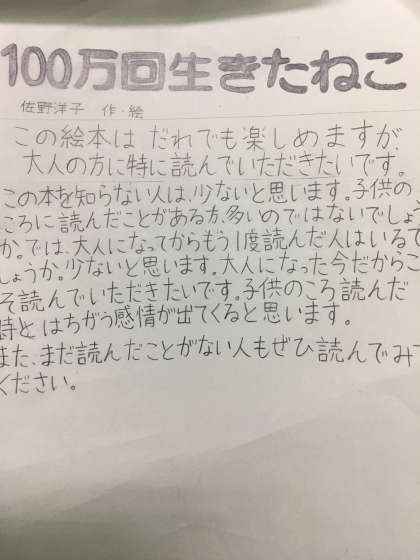 100万回生きたねこ
佐野洋子 作・絵
この絵本は だれでも楽しめますが、
大人の方に特に読んでいただきたいです。
この本を知らない人は、少ないと思います。子供の
ころに読んだことがある方、多いのではないでしょう
か。では、大人になってからもう1度読んだ人はいるで
しょうか。少ないと思います。大人になった今だからこ
そ読んでいただきたいです。子供のころ読んだ
時とはちがう感情が出てくると思います。
また、まだ読んだことがない人もぜひ読んでみて
ください。